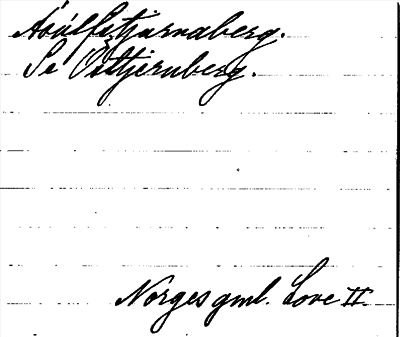 Aðúlfstjarnaberg.
Se Østjernberg.
Norges gml. Love II.